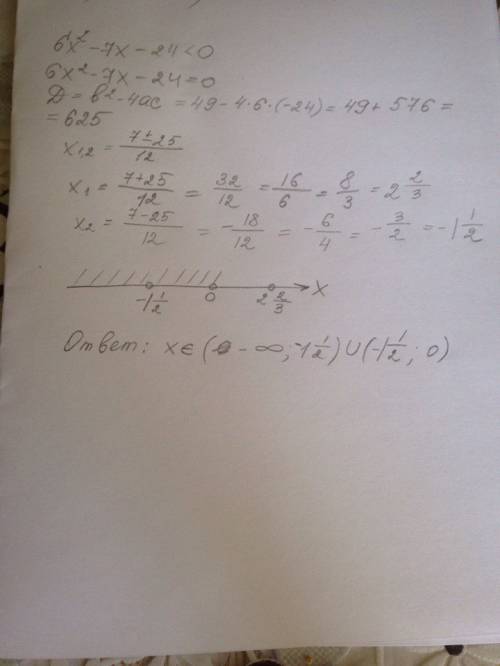 6x² - 7x - 24 < 0
6x² - 7x - 24 = 0
D = b² - 4ac = 49 - 4·6·(-24) = 49 + 576 =
= 625
x₁,₂ = (7 ± 25)/12
x₁ = (7+25)/12 = 32/12 = 16/6 = 8/3 = 2 2/3
x₂ = (7-25)/12 = -18/12 = -6/4 = -3/2 = -1 1/2
-1 1/2 0 2 2/3 X
Ответ: x ∈ (-∞; -1 1/2) ∪ (-1 1/2; 0)